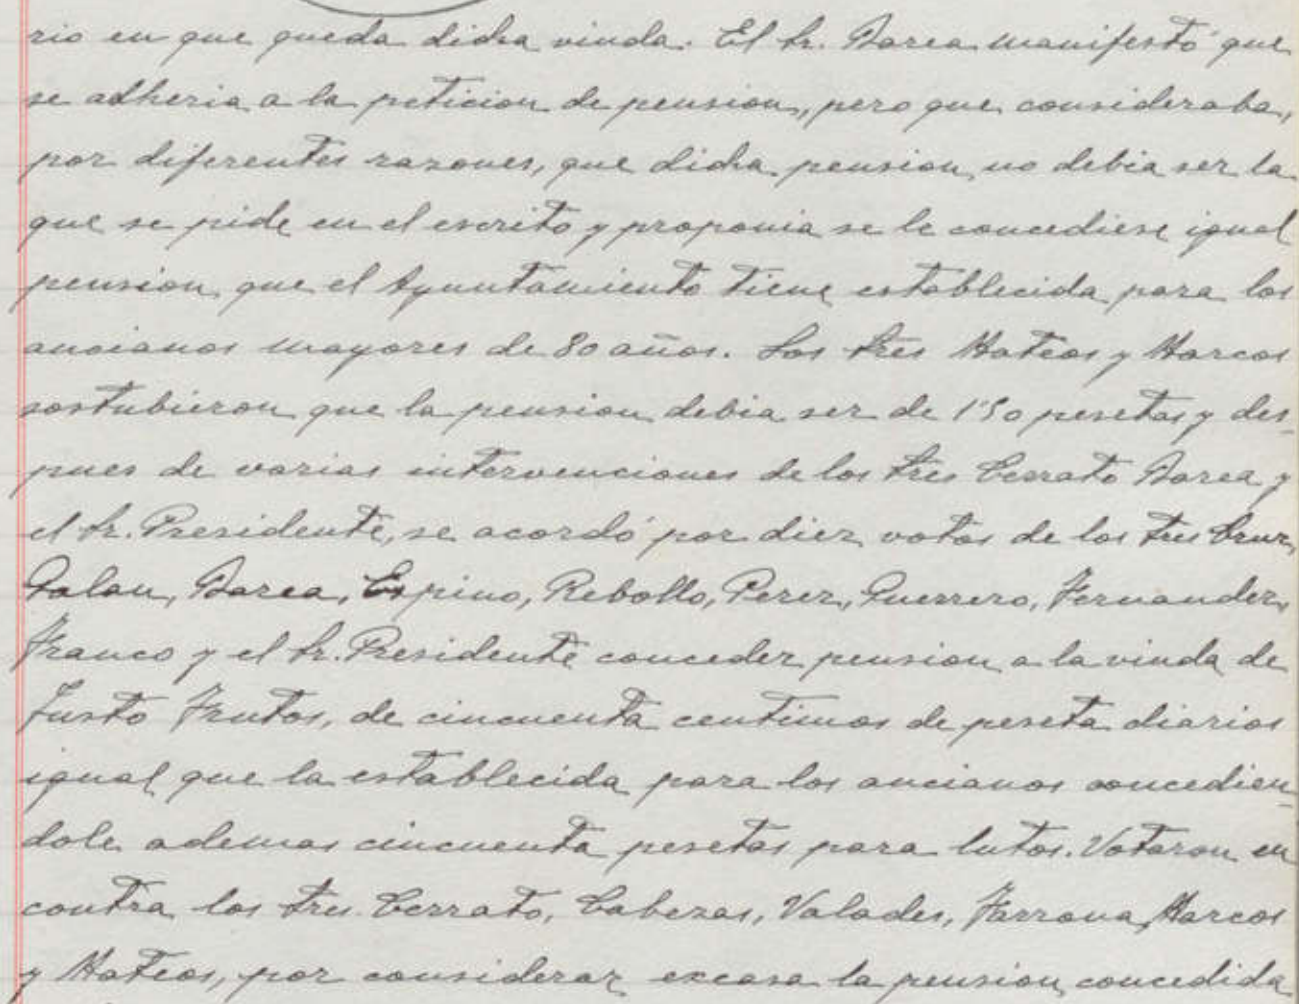 rio en que queda dicha viuda. El Sr. Barea manifestó que
se adheria a la peticion de pension, pero que consideraba,
por diferentes razones, que dicha pension, no debia ser la
que se pide en el escrito y proponia se le concediese igual
pension, que el Ayuntamiento tiene establecida para los
ancianos mayores de 80 años. Los Sres Mateos y Marcos
sostubieron que la pension debia ser de 1'50 pesetas y des-
pues de varias intervenciones de los Sres Cerrato Barea y
el Sr. Presidente, se acordó por diez votos de los Sres Cruz,
Galan, Barea, Espino, Rebollo, Perez, Guerrero, Fernandez,
Franco y el Sr. Presidente conceder pension a la viuda de
Justo Frutos, de cincuenta centimos de peseta diarios
igual que la establecida para los ancianos concedien-
dole ademas cincuenta pesetas para lutos. Votaron en
contra los Sres. Cerrato, Cabezas, Valades, Farrona, Marcos
y Mateos, por considerar escasa la pension, concedida